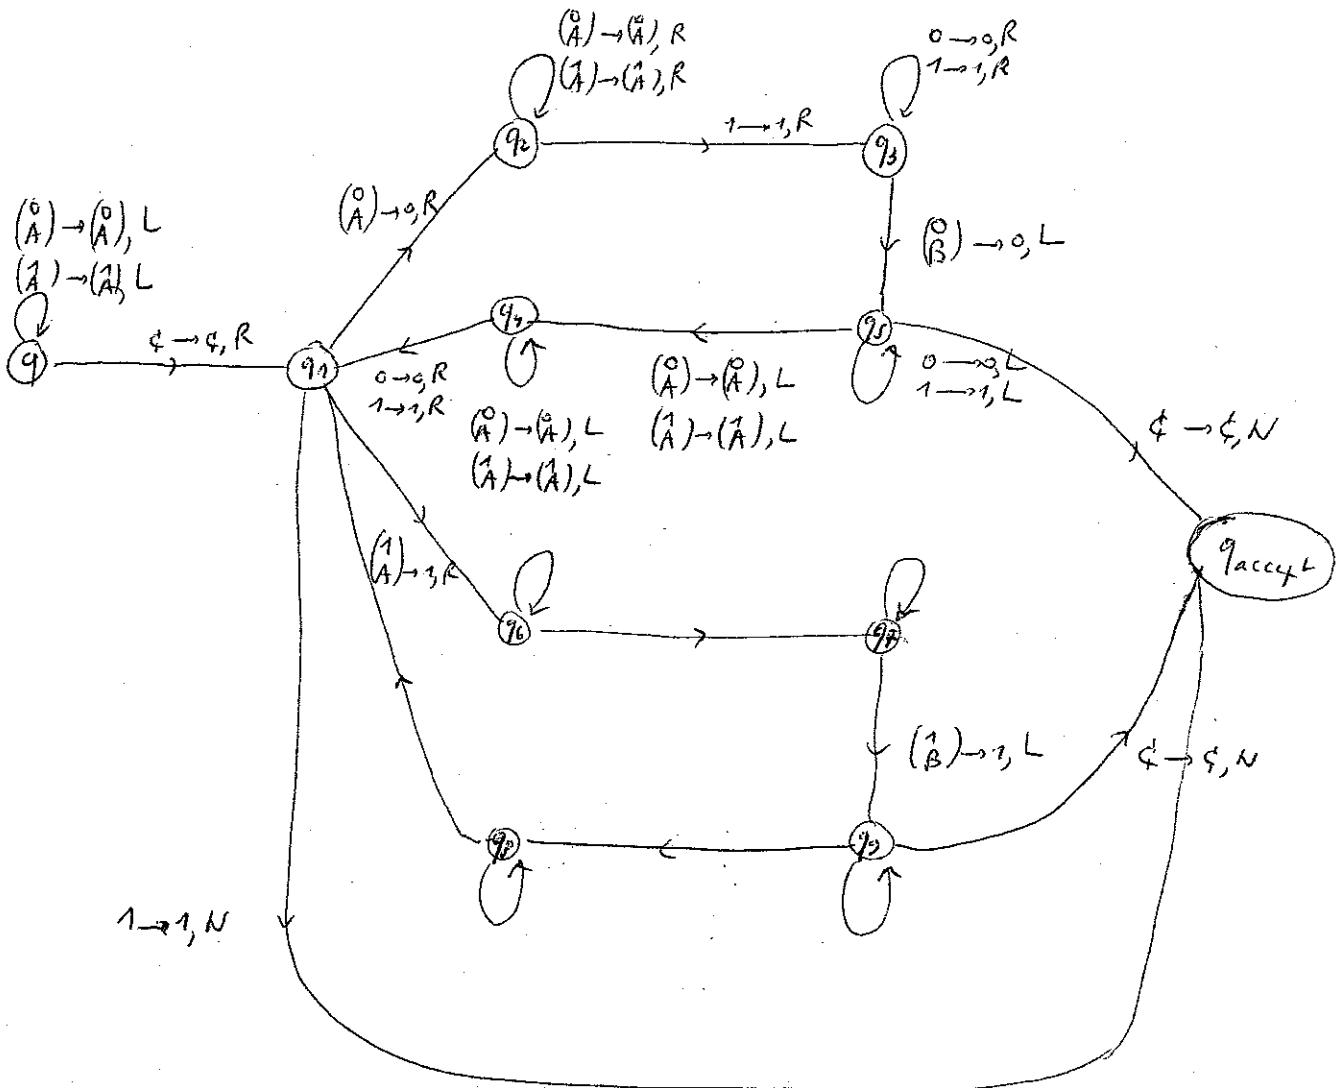 (0 A) → (0 A), R
(1 A) → (1 A), R
0 → 0, R
1 → 1, R
q2
1 → 1, R
q3
(0 A) → 0, R
(0 A) → (0 A), L
(1 A) → (1 A), L
(0 B) → 0, L
q4
q5
¢ → ¢, R
q
q1
0 → 0, R
1 → 1, R
(0 A) → (0 A), L
(1 A) → (1 A), L
0 → 0, L
1 → 1, L
(0 A) → (0 A), L
(1 A) → (1 A), L
¢ → ¢, N
q accept
(1 A) → 1, R
q6
q7
(1 B) → 1, L
¢ → ¢, N
q8
q9
1 → 1, N